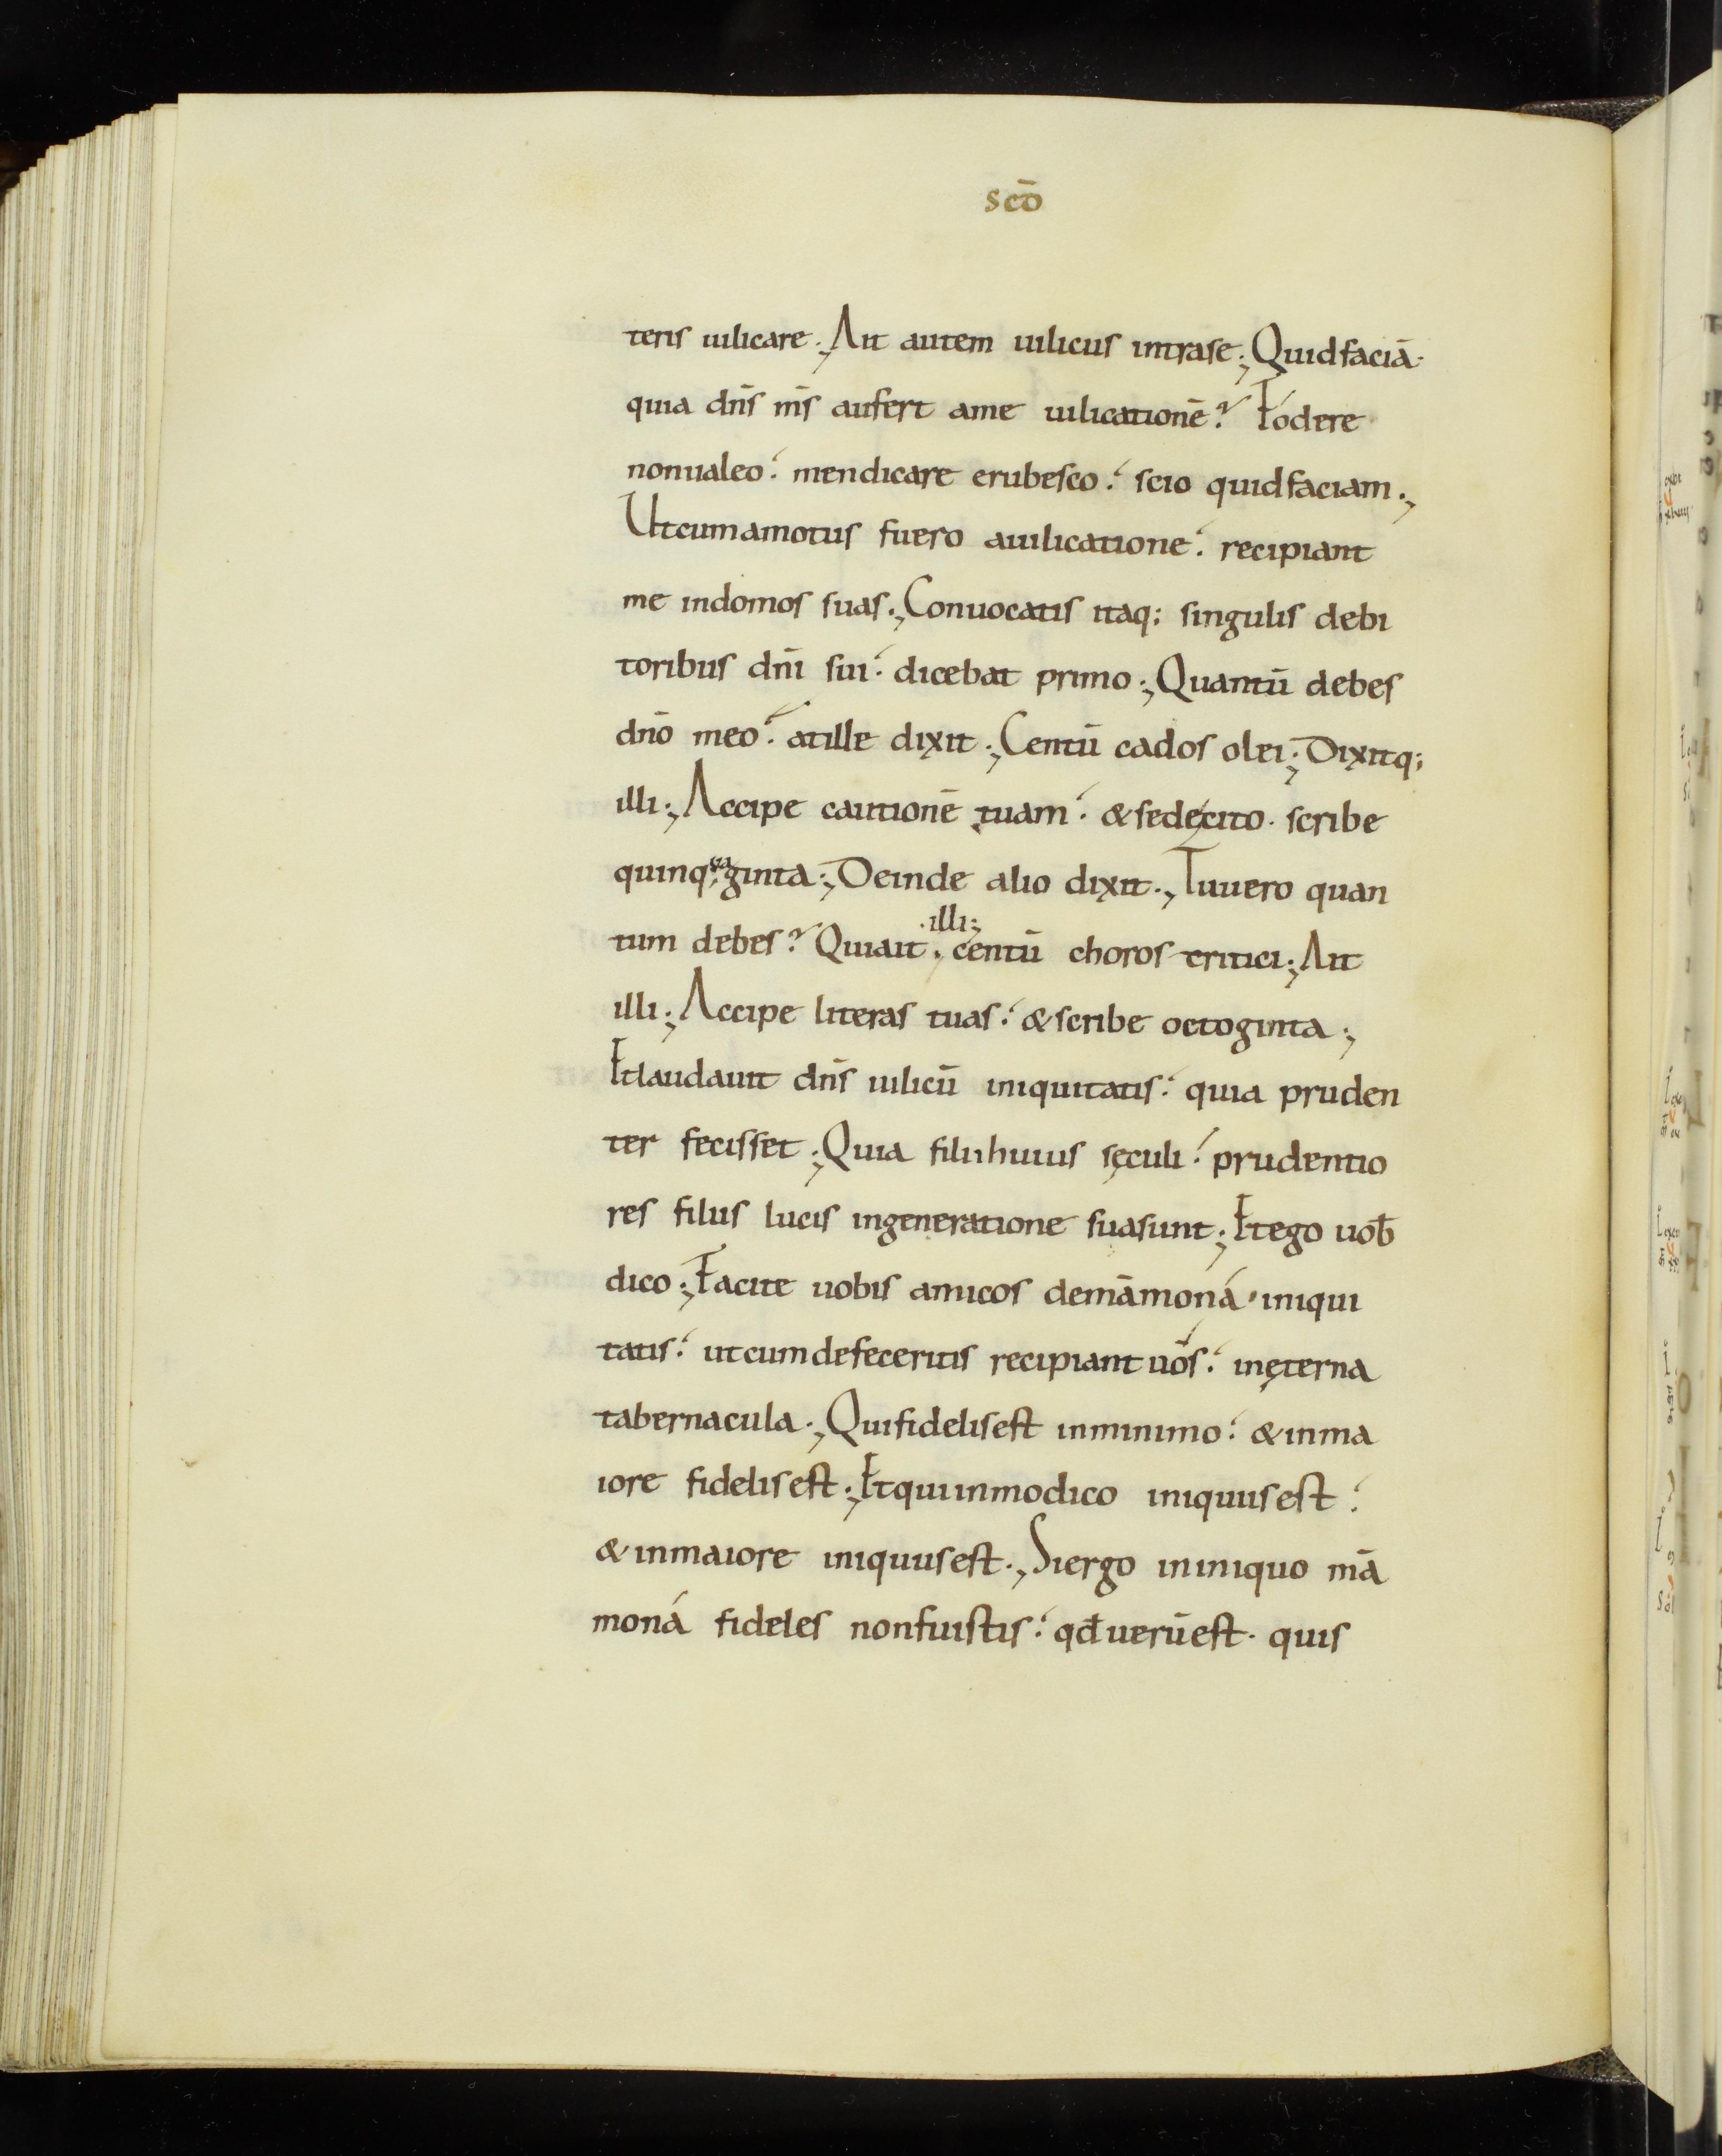 scō
teris uilicare·, Ait autem uilicus intrase·, Quidfaciā·
quia dn̄s m̄s aufert ame uilicationē? Fódere
nonualeo⸵ mendicare erubesco⸵ scio quidfaciam·,
Utcumamotus fuero auilicatione⸵ recipiant
me indomos suas·, Conuocatis itaq; singulis debi
toribus dn̄i sui⸵ dicebat primo·, Quantū debes
dn̄o meo? atille dixit·, Centū cados olei·, Dixitq;
illi·, Accipe cautionē tuam⸵ & sedecito· scribe
quinq;uaginta·, Deinde alio dixit·, Tuuero quan
tum debes? Quiait·, illi; centū choros tritici·, Ait
illi·, Accipe literas tuas⸵ & scribe octoginta·,
Etlaudauit dn̄s uilicū iniquitatis⸵ quia pruden
ter fecisset·, Quia filiihuius sęculi⸵ prudentio
res filiis lucis ingeneratione suasunt·, Etego uob̄
dico·, Facite uobis amicos demāmoná iniqui
tatis⸵ utcumdefeceritis recipiant uós⸵ inęterna
tabernacula·, Quifidelisest inminimo⸵ & inma
iore fidelisest·, Etquiinmodico iniquusest⸵
& inmaiore iniquusest·, Siergo ininiquo mā
moná fideles nonfuistis⸵ qđuerūest· quis